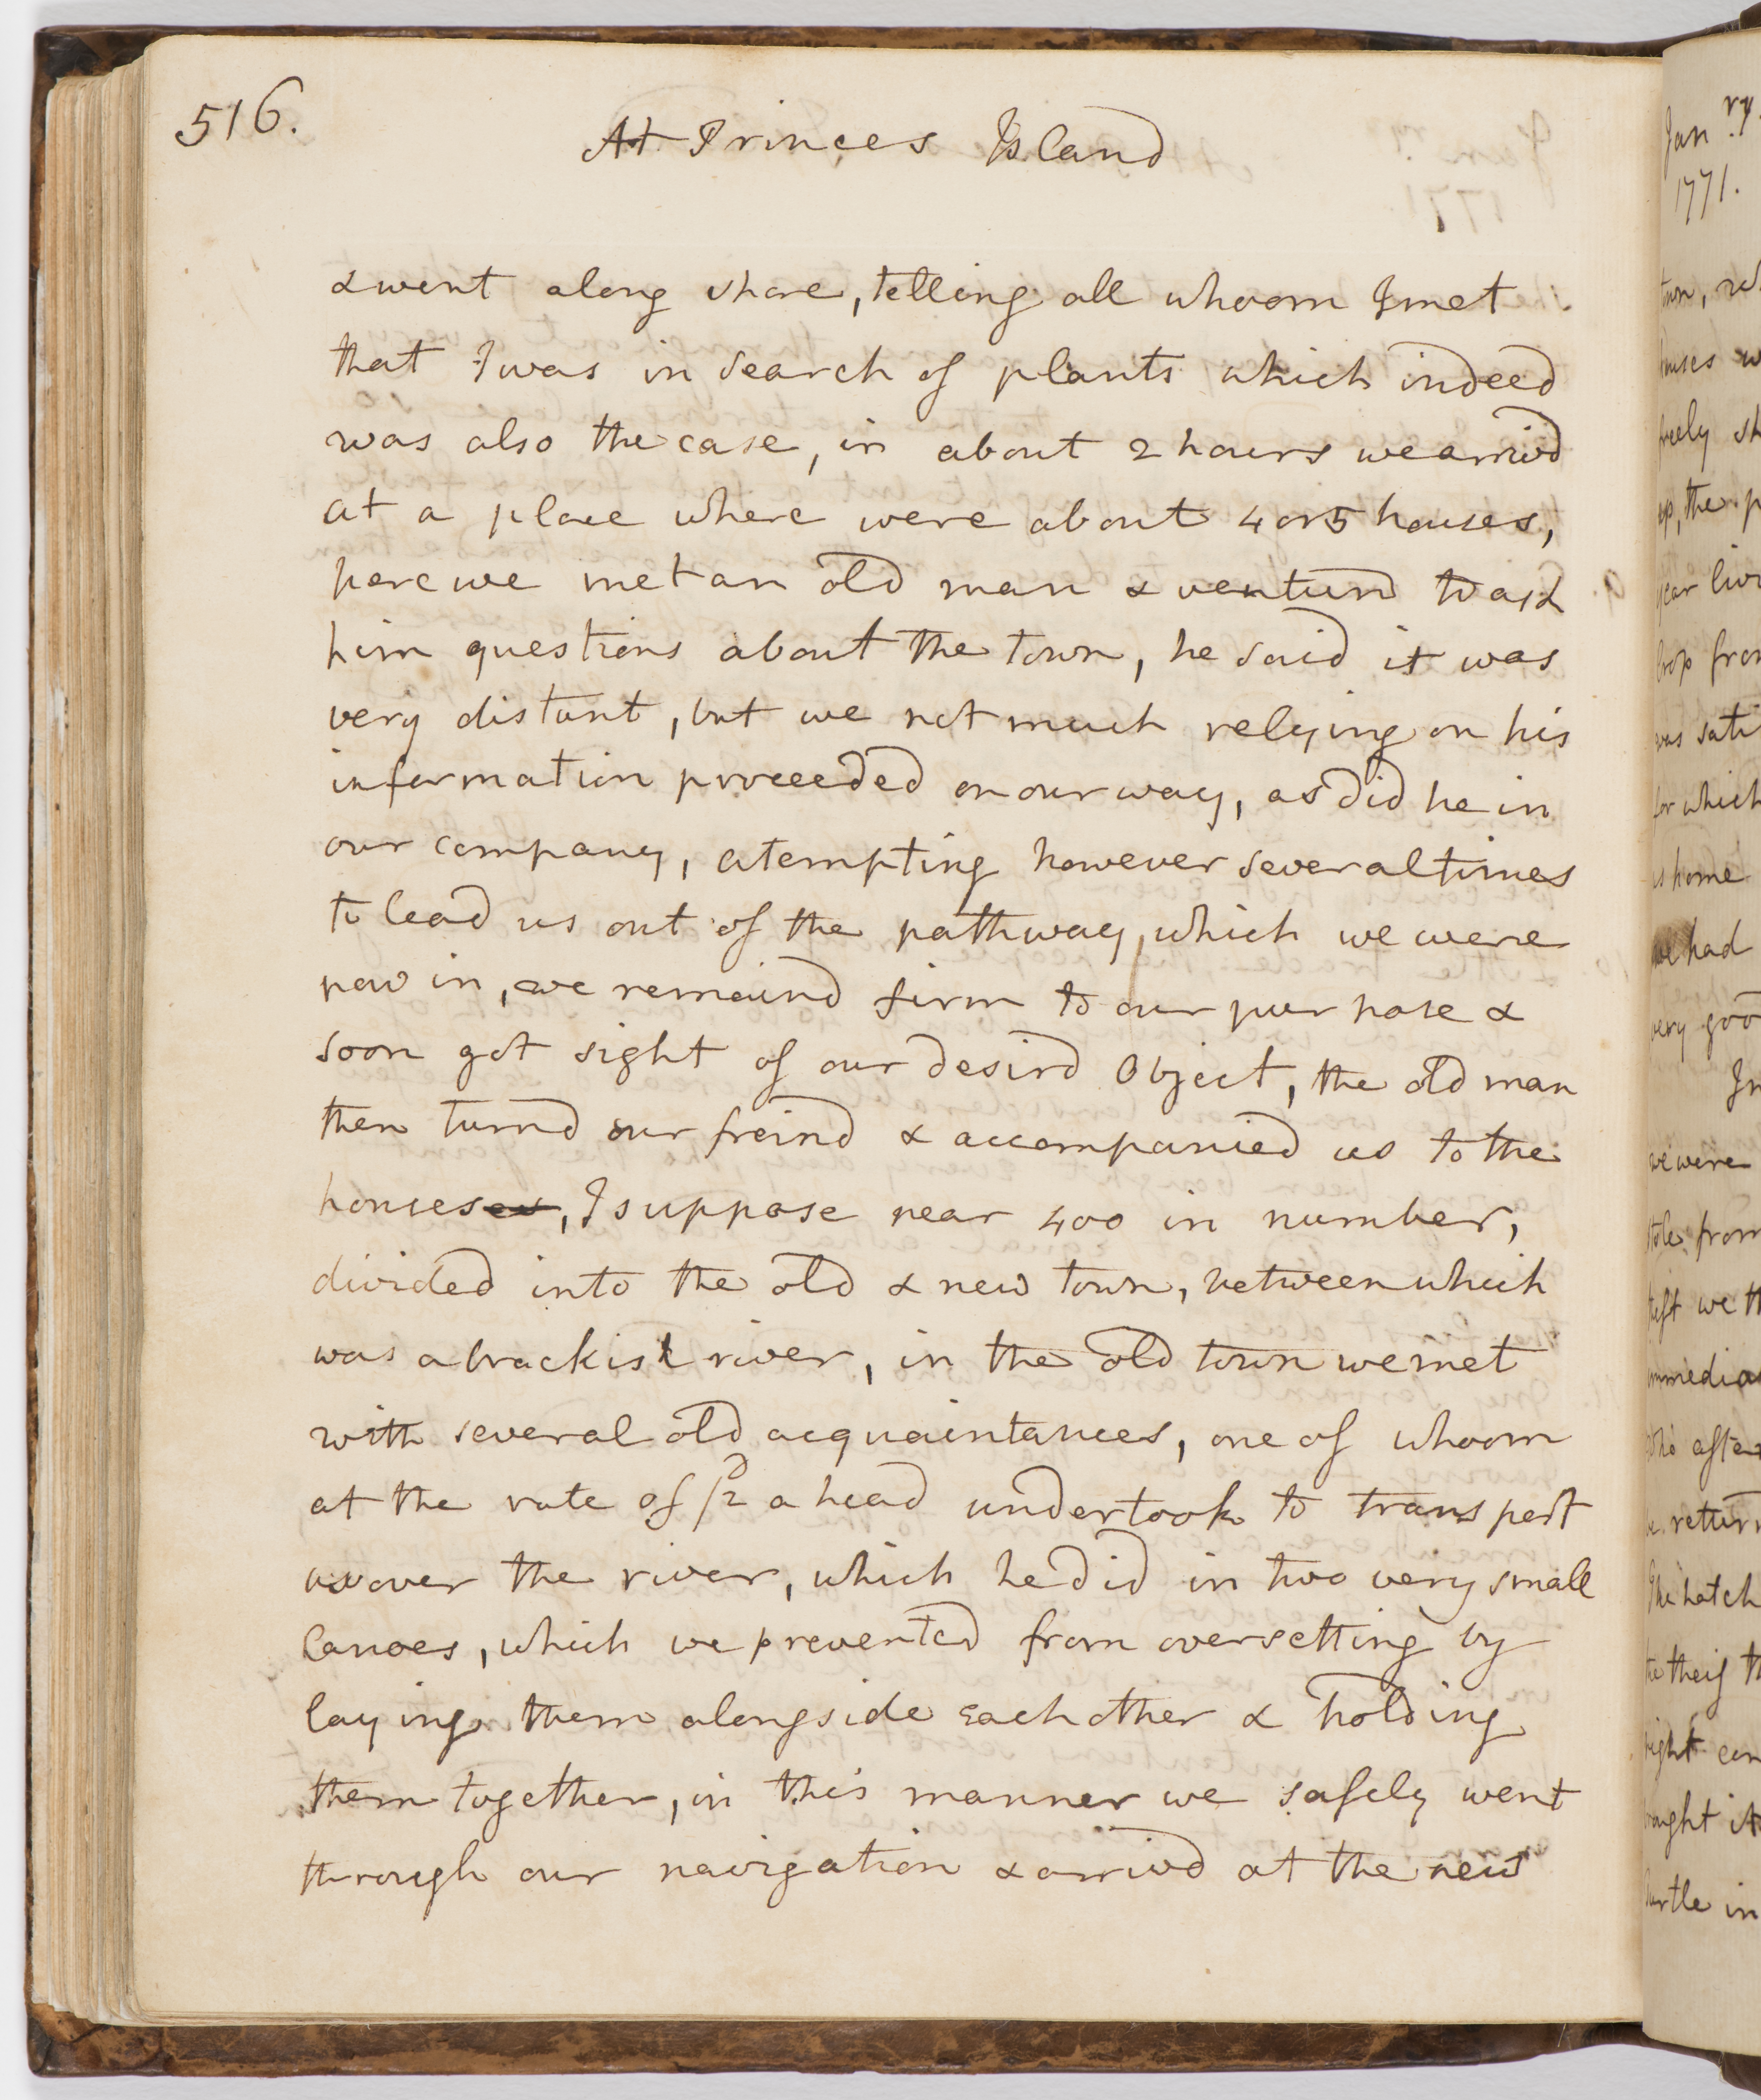 516.
At Princes Island
& went along shore, telling all whoom I met
that I was in Search of plants which indeed
was also the case, in about 2 hours we arrivd
at a place where were about 4 or 5 houses,
here we met an old man & venturd to ask
him questions about the town, he said it was
very distant, but we not much relying on his
information proceeded on our way, as did he in
our company, atempting however several times
to lead us out of the pathway, which we were
now in, we remaind firm to our purpose &
soon got sight of our desird Object, the old man
then turnd our freind & accompanied us to the
houses, I suppose near 400 in number,
divided into the old & new town, between which
was a brackish river, in the old town we met
with several old acquaintances, one of whoom
at the rate of 2d a head undertook to transport
us over the river, which he did in two very small
Canoes, which we prevented from oversetting by
laying them alongside each other & holding
them together, in this manner we safely went
through our navigation & arrivd at the new
Jan ry
1771.
town,
houses
freely
up, the
year
crop from
was
for which
us home
we had
very good
In
we were
stole from
theft we
immedia
who after
be return
The hatch
the theif
might
brought it
turtle in